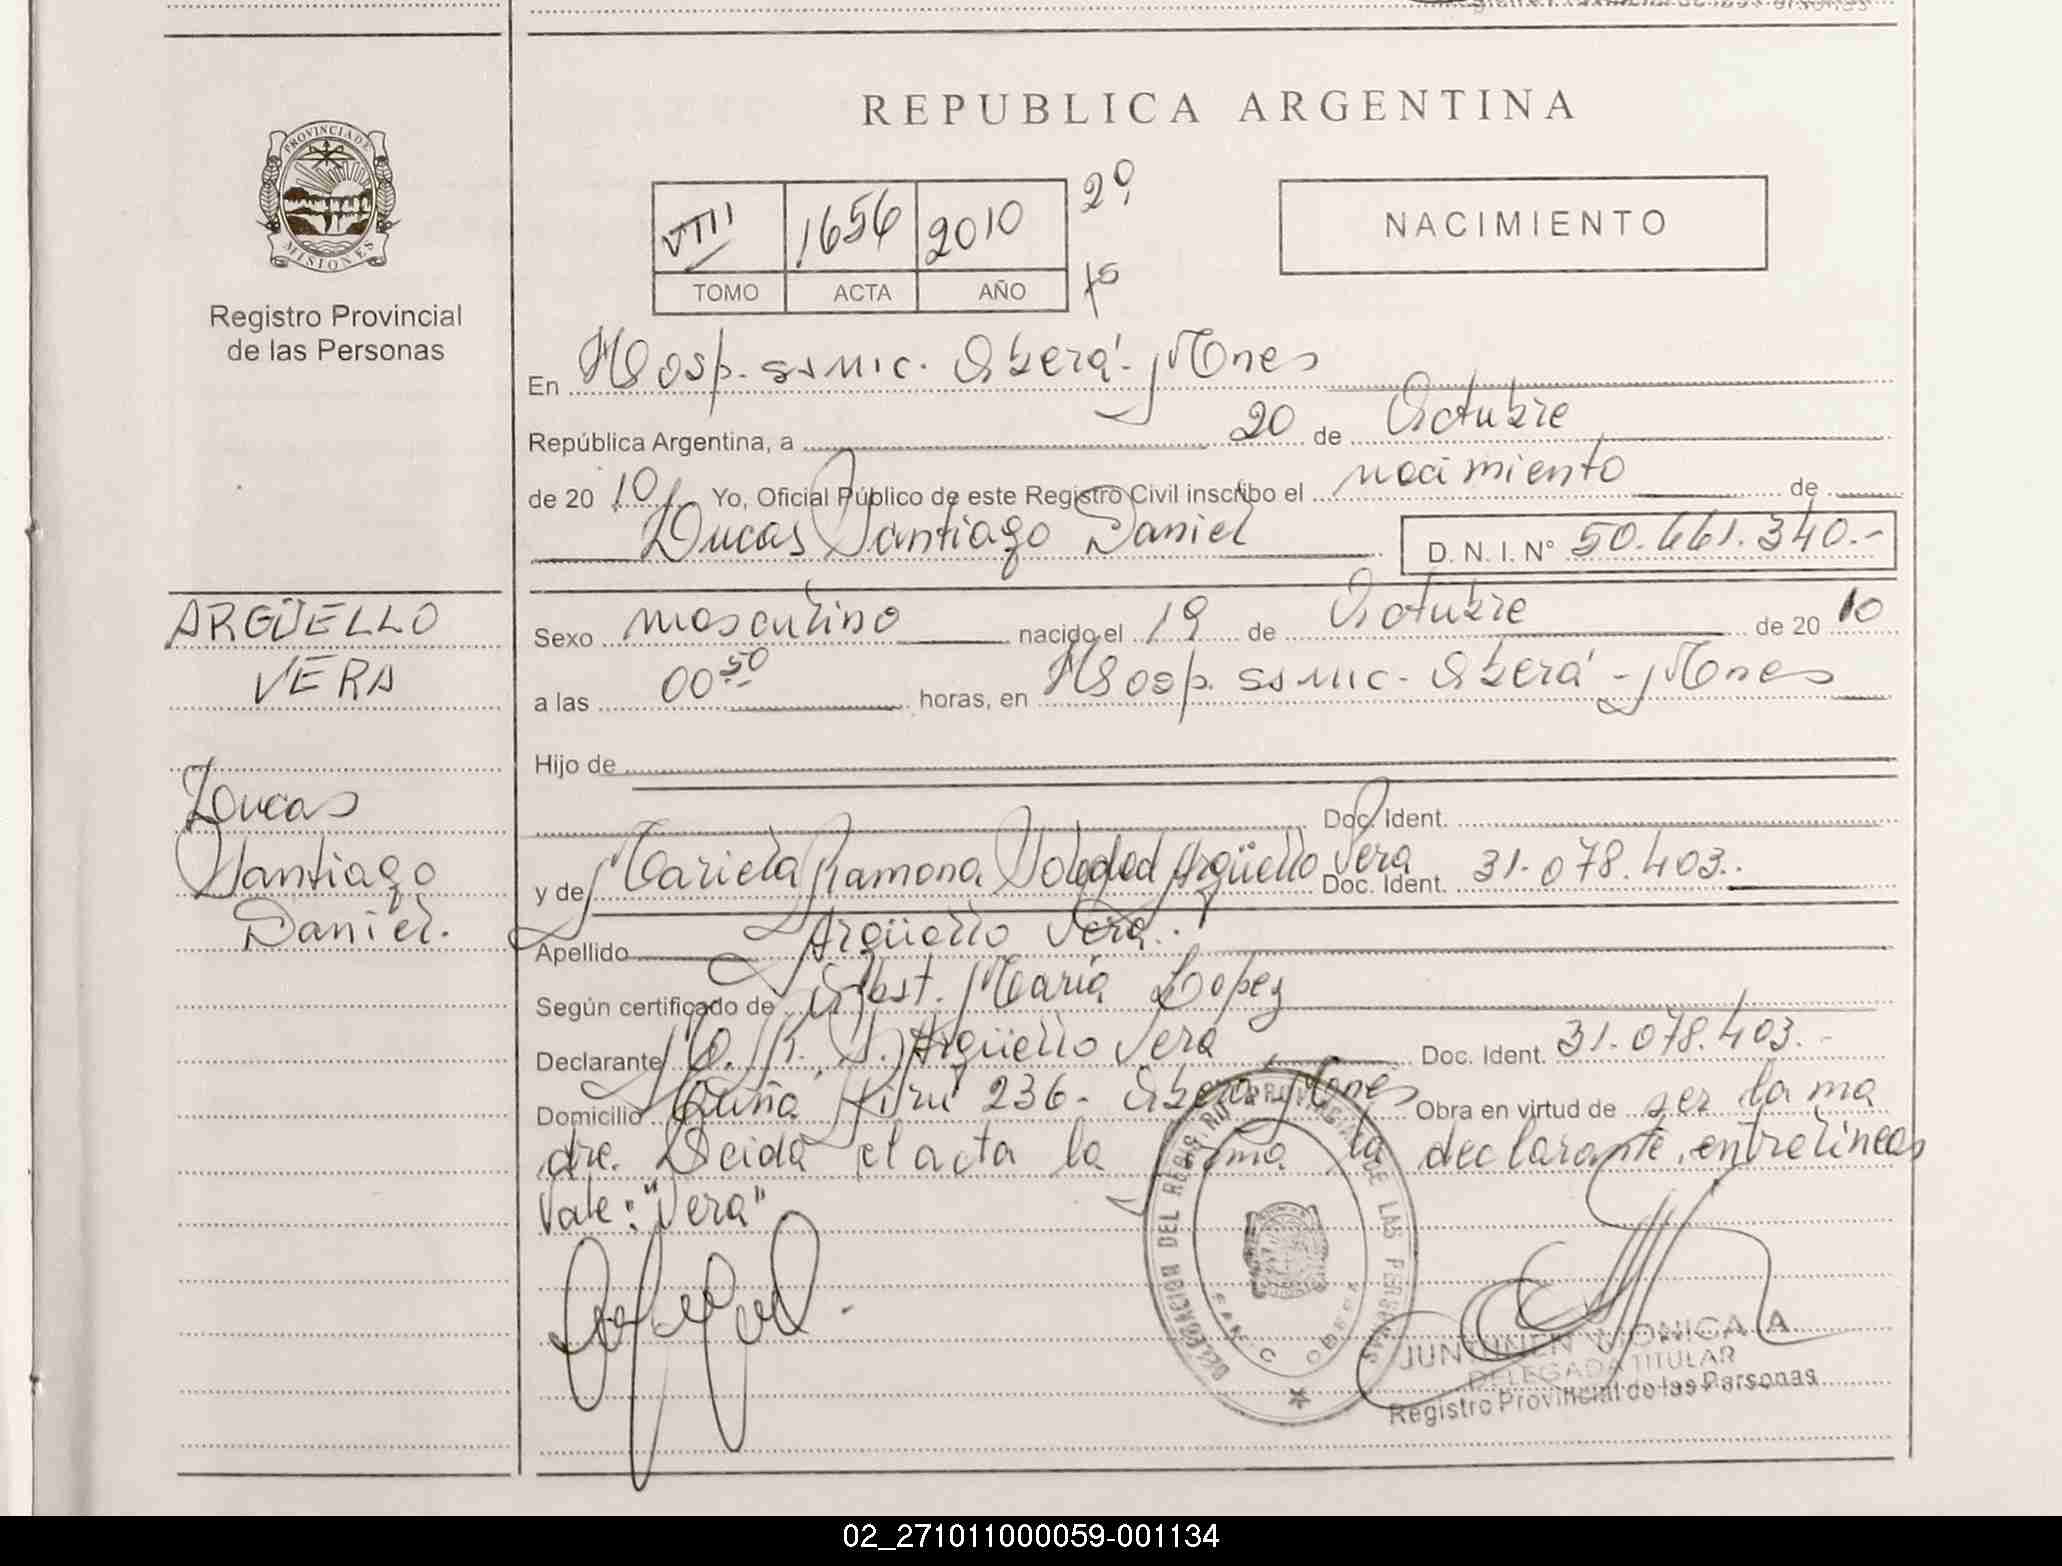 REPUBLICA ARGENTINA
PROVINCIA DE
MISIONES
Registro Provincial
de las Personas
VIII 1656 2010 2º
TOMO ACTA AÑO
NACIMIENTO
En Hosp. ssmic. Oberá - Mnes
República Argentina, a 20 de Octubre
de 20 10 Yo, Oficial Público de este Registro Civil inscribo el nacimiento de
Lucas Santiago Daniel D. N. I. Nº 50.661.340.-
ARGÜELLO
VERA
Lucas
Santiago
Daniel.
Sexo masculino nacido el 19 de Octubre de 20 10
a las 00 50 horas, en Hosp. ssmic - Oberá - Mnes
Hijo de
Doc. Ident.
y de Mariela Ramona Soledad Argüello Vera Doc. Ident. 31.078.403.-
Apellido Argüello Vera.-
Según certificado de Obst. María Lopez
Declarante M. R. S. Argüello Vera Doc. Ident. 31.078.403.-
Domicilio Picurú 236 - Oberá Mnes Obra en virtud de ser la ma
dre. Leida el acta la firma la declarante. entrelineas
Vale: "Vera"
DELEGACION DEL REGISTRO PROVINCIAL DE LAS PERSONAS
OBERA
JUNTUNEN MONICA A.
DELEGADA TITULAR
Registro Provincial de las Personas
02_271011000059-001134